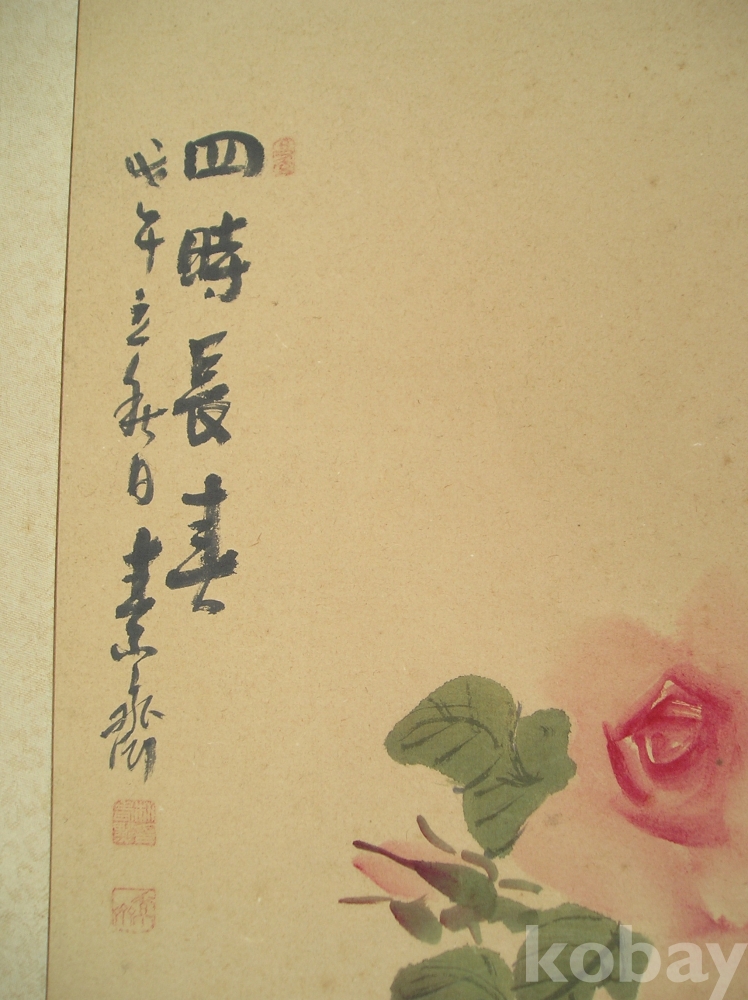 四時長春
戊午立秋日素齋
kobay